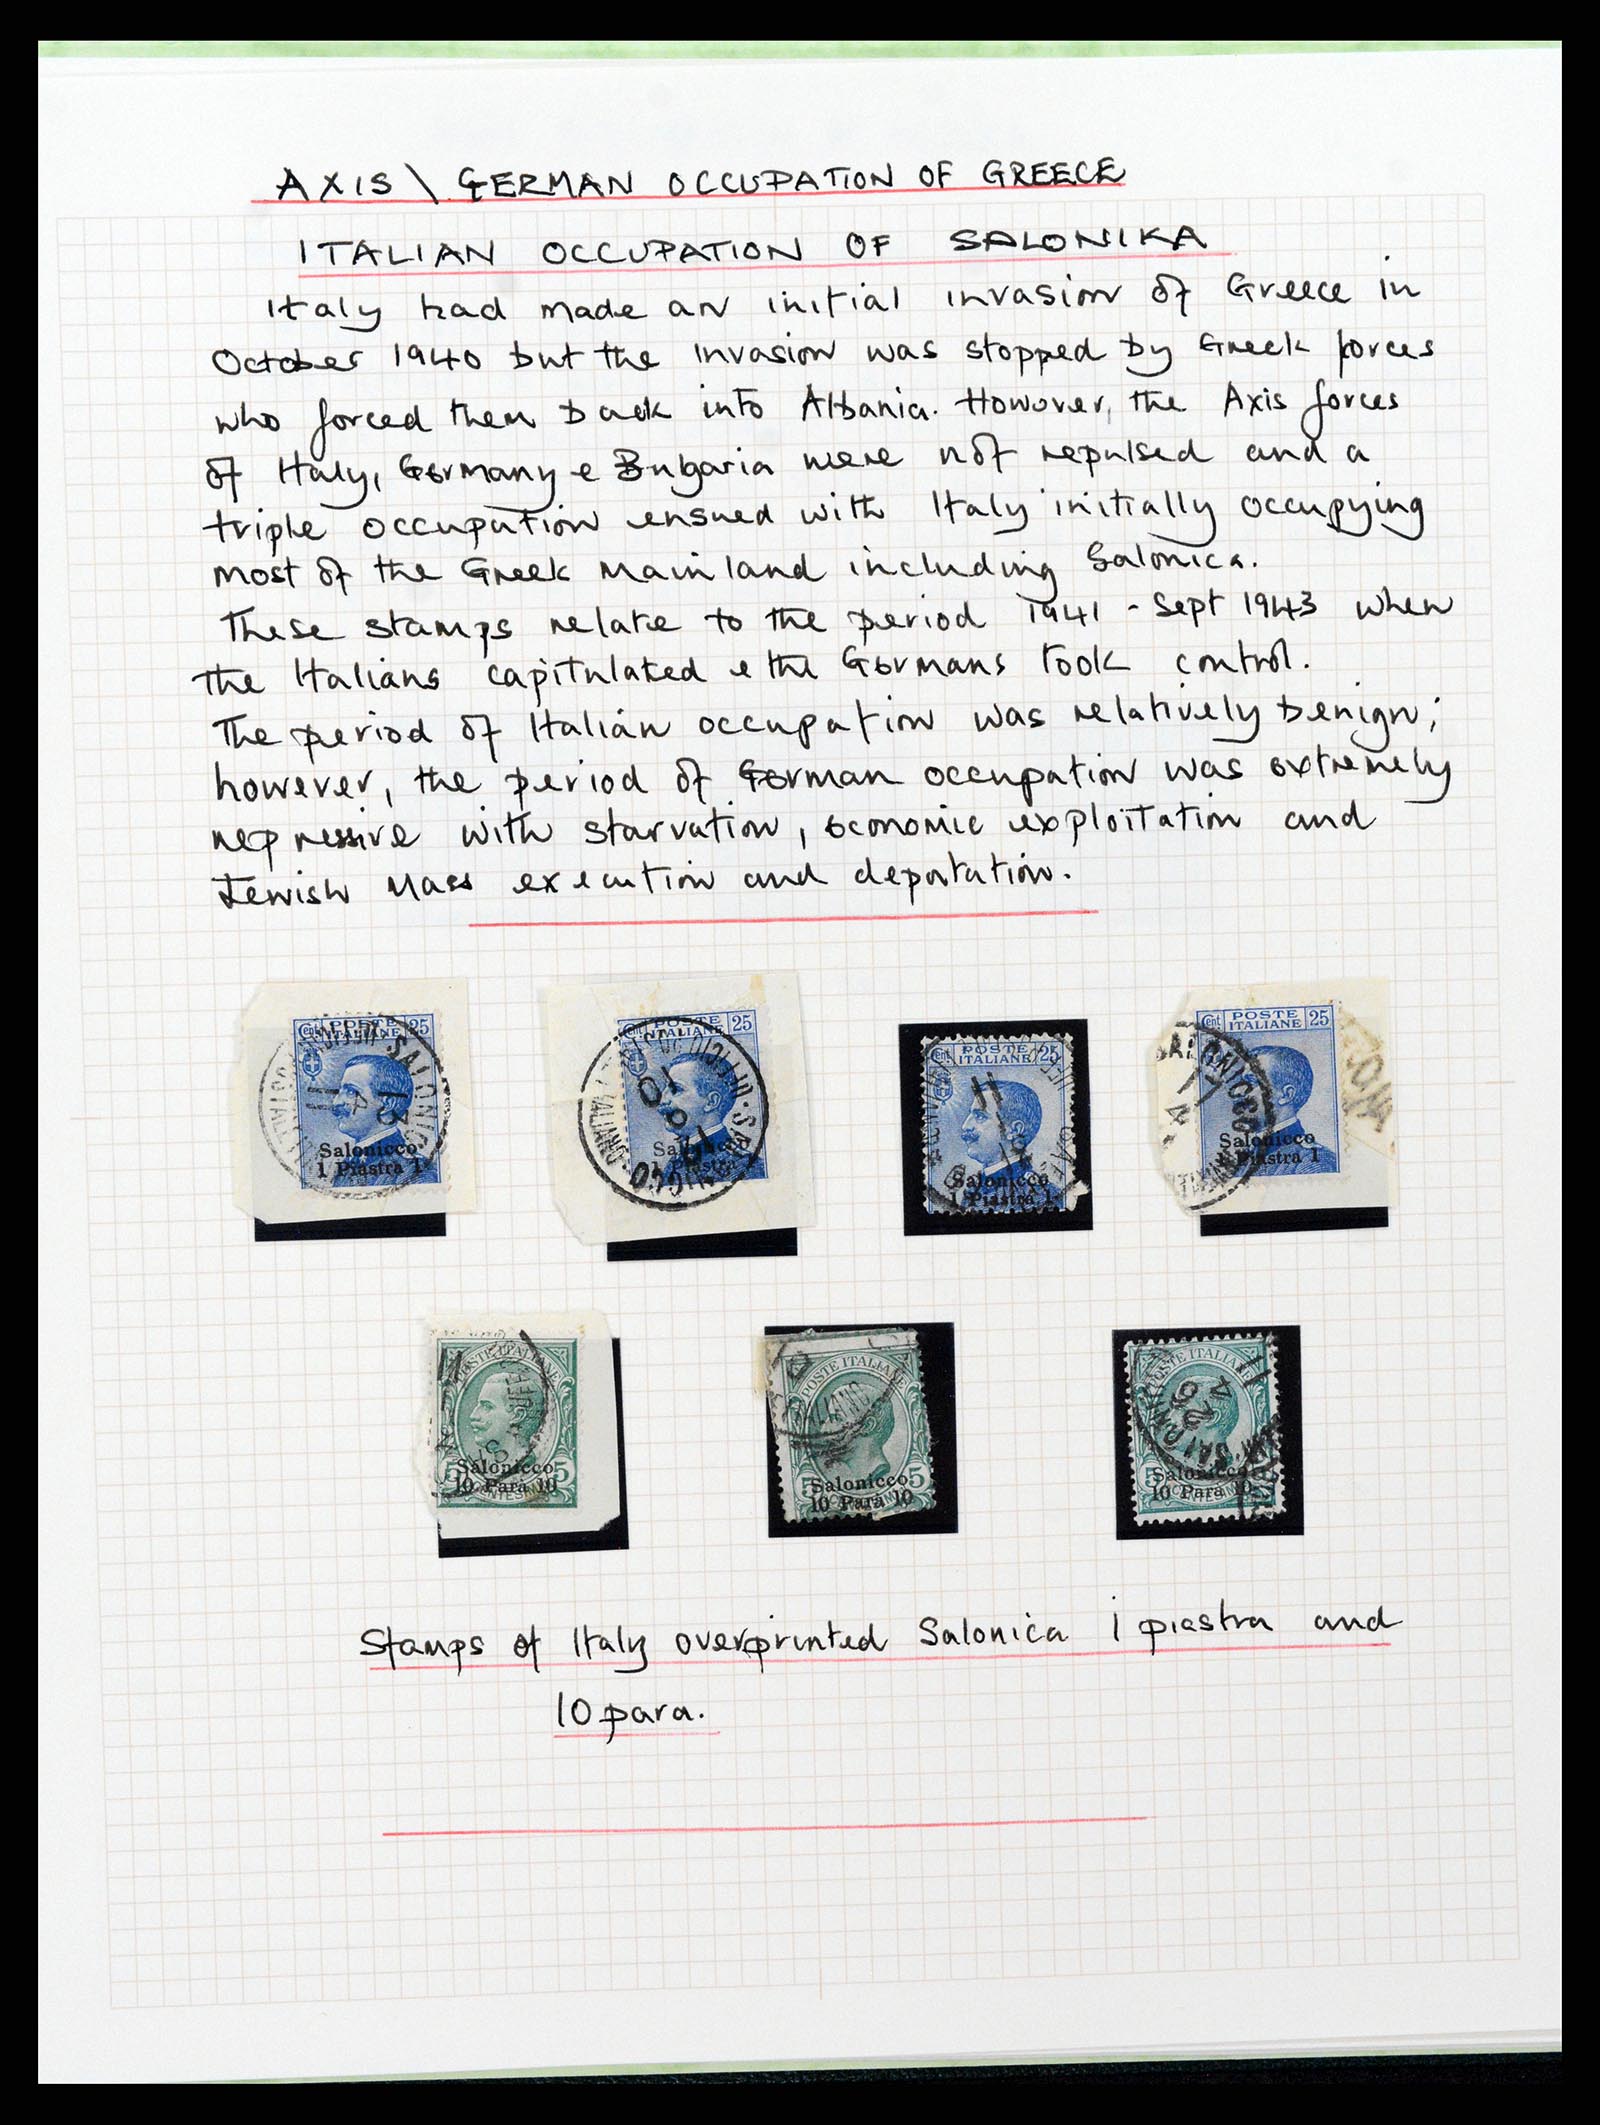 AXIS \ GERMAN OCCUPATION OF GREECE
ITALIAN OCCUPATION OF SALONIKA
Italy had made an initial invasion of Greece in
October 1940 but the invasion was stopped by Greek forces
who forced them back into Albania. However, the Axis forces
of Italy, Germany e Bulgaria were not repulsed and a
triple occupation ensued with Italy initially occupying
most of the Greek mainland including Salonica.
These stamps relate to the period 1941 - Sept 1943 when
the Italians capitulated e the Germans took control.
The period of Italian occupation was relatively benign;
however, the period of German occupation was extremely
repressive with starvation, economic exploitation and
Jewish Mass execution and deportation.
Cent POSTE ITALIANE 25
Salonicco
1 Piastra 1
Cent POSTE ITALIANE 25
Salonicco
Piastra
Cent POSTE ITALIANE 25
Salonicco
1 Piastra 1
Cent POSTE ITALIANE 25
Salonicco
1 Piastra 1
POSTE ITALIANE
5 Salonicco 5
10 Para 10
POSTE ITALIANE
5 Salonicco 5
10 Para 10
POSTE ITALIANE
5 Salonicco
10 Para 10
Stamps of Italy overprinted Salonica 1 piastra and
10 para.